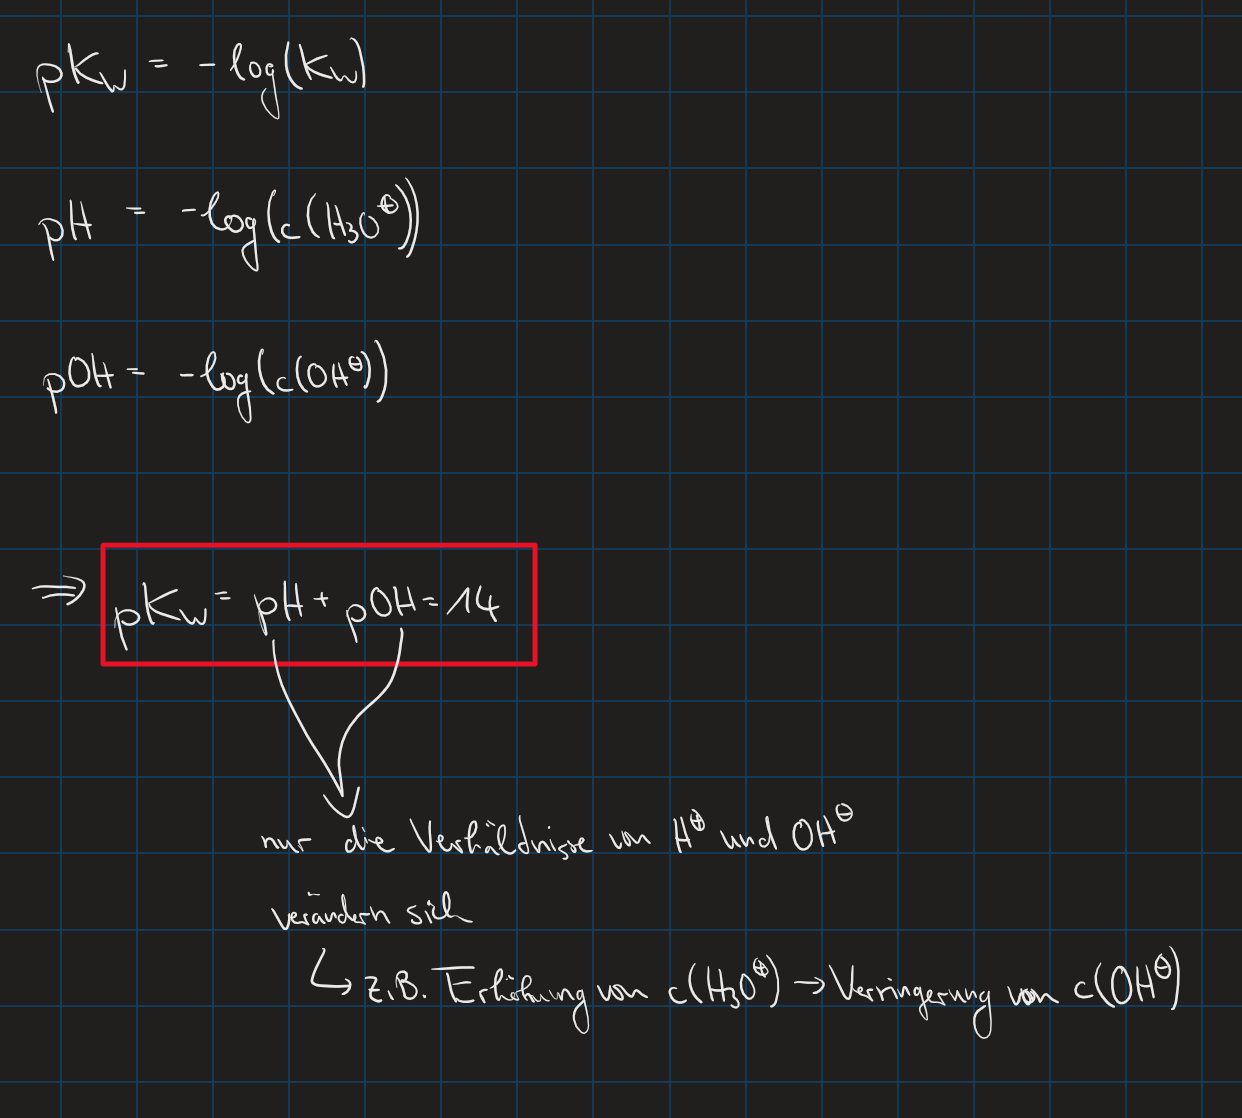 pKw = -log(Kw)
pH = -log(c(H₃O⊕))
pOH = -log(c(OH⊖))
⇒ pKw = pH + pOH = 14
nur die Verhäldnisse von H⊕ und OH⊖
verändern sich
↳ z.B. Erhöhung von c(H₃O⊕) → Verringerung von c(OH⊖)